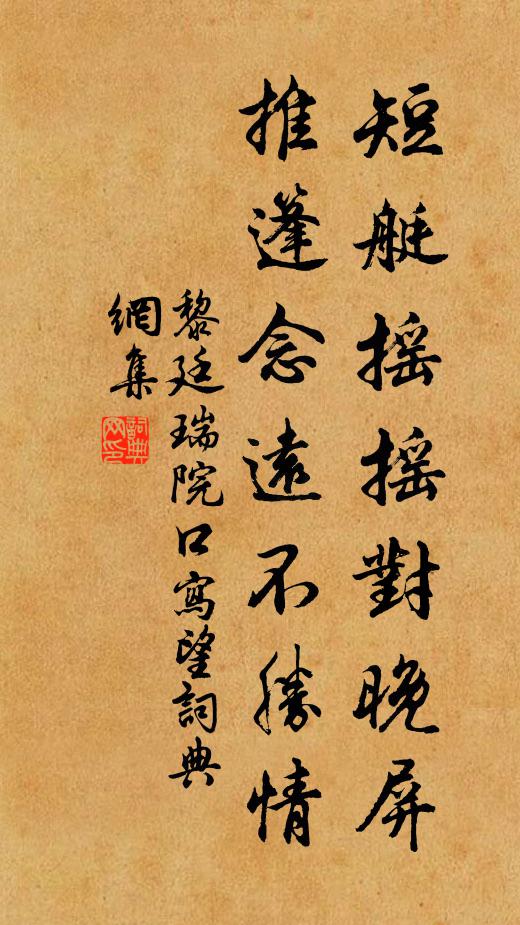 短艇摇摇對晚屏
推篷念遠不勝情
黎廷瑞院口寫望詞典
網集
詞典网印